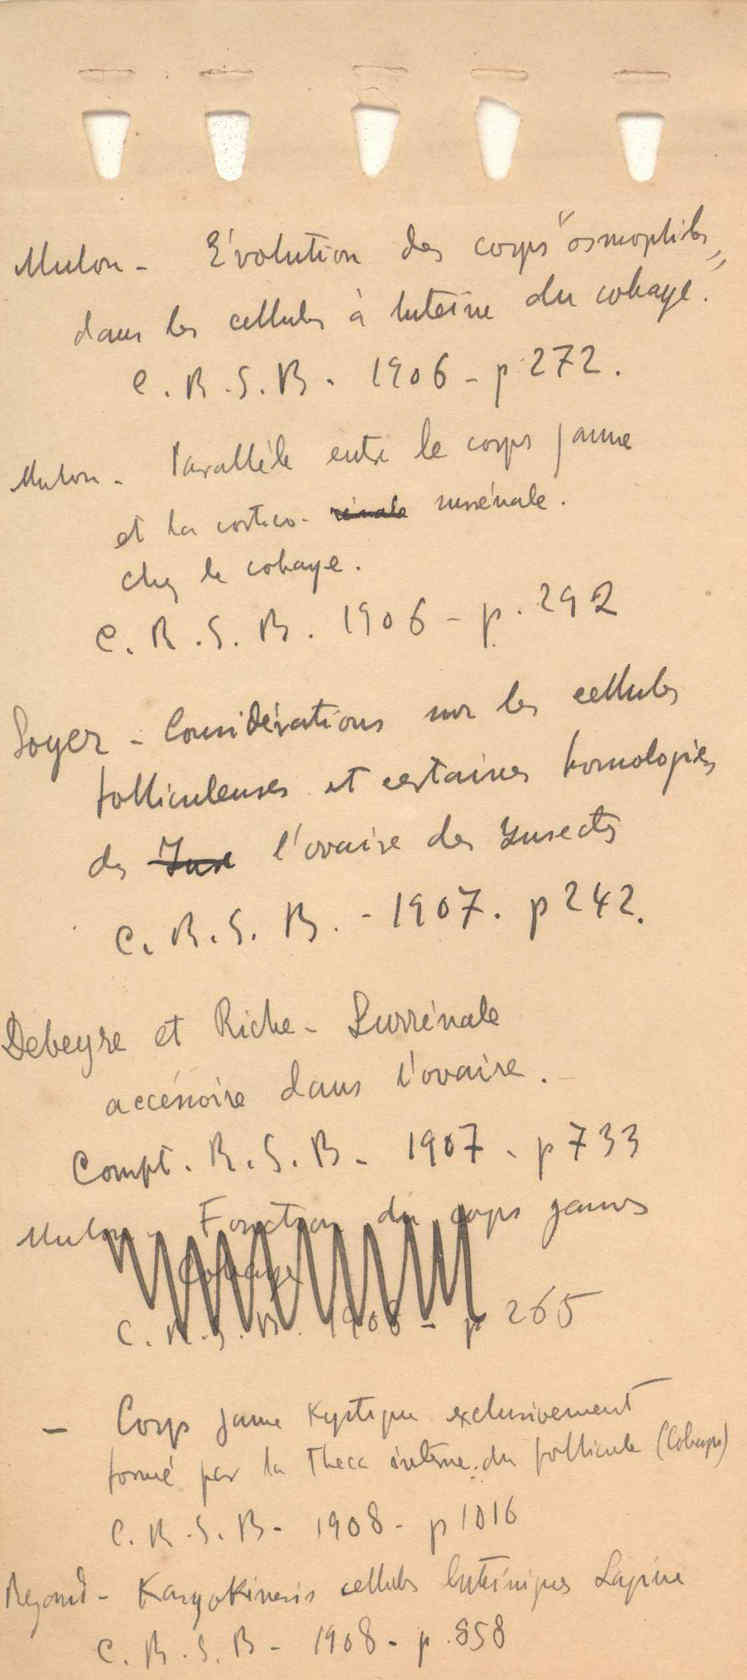 Mulon - Évolution des corps "osmophiles"
dans les cellules à lutéine du cobaye.
C. R. S. B. - 1906 - p 272.
Mulon - Parallèle entre le corps jaune
et la cortico - rénale surrénale.
chez le cobaye.
C. R. S. B. 1906 - p. 292
Soyer - Considérations sur les cellules
folliculeuses et certaines homologies
de Inse l'ovaire des Insectes
C. R. S. B. - 1907. p 242.
Debeyre et Riche - Surrénale
accessoire dans l'ovaire.
Compt. R. S. B - 1907 - p 733
Mulon - Fonction du corps jaunes
Cobaye
C. R. S. B. 1908 - p 265
- Corps jaune Kystique exclusivement
formé par la Theca interne du follicule (Cobaye)
C. R. S. B - 1908 - p 1016
Regaud - Karyokinesis cellules lutéiniques Lapine
C. R. S. B - 1908 - p. 858